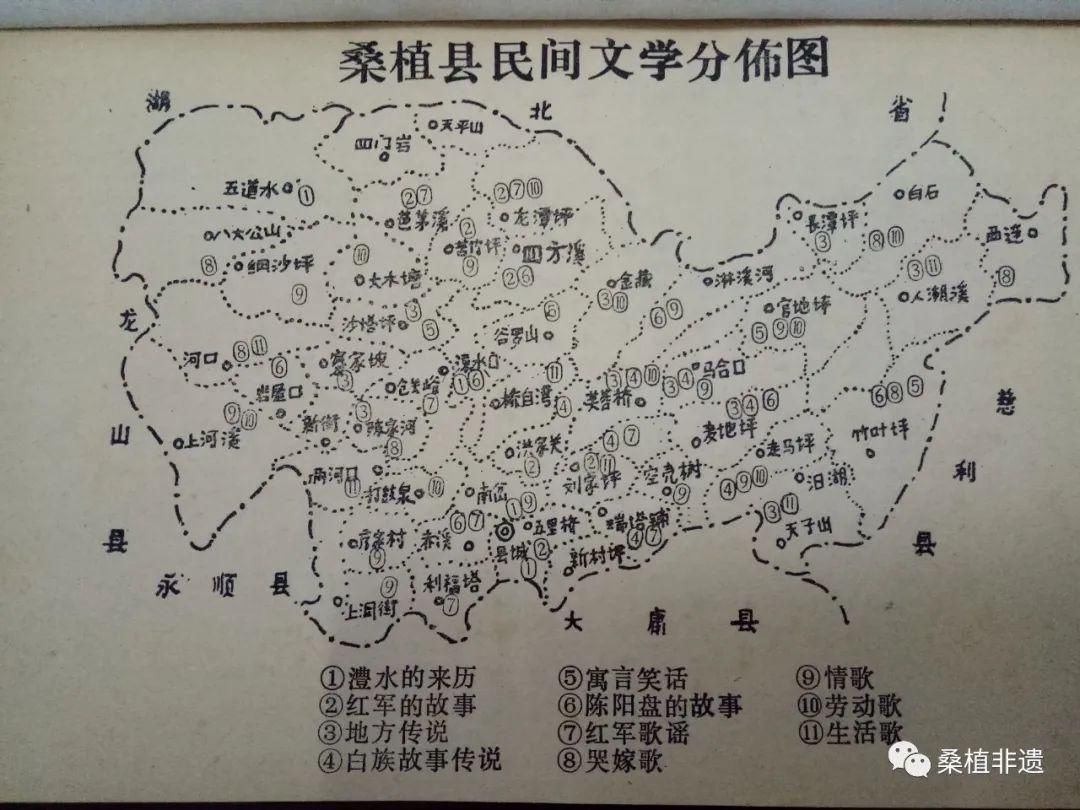 桑植县民间文学分佈图
湖 北 省
天平山
四门岩
五道水 ①
②⑦
②⑦⑩
白石
芭茅溪
②
龙潭坪
長潭坪
③
⑧⑩
西莲
八大公山
⑧
苦竹坪
⑨
四方溪
②⑥
⑩
细沙坪
⑨
大木塘
金藏
③⑩
淋溪河
③⑪
⑧
人潮溪
龙
沙塔坪
③
⑤
⑤
⑥⑨
官地坪
⑤⑨⑩
谷罗山
河口
⑧⑪
⑥
③
仓关峪
⑦
凉水口
①⑥
⑪
③④⑩
③④
马合口
⑨
岩屋口
⑨⑩
④
芙蓉桥
③④⑥
⑥⑧⑤
慈
山
上河溪
新街
③
陈家河
⑧
洪家关
②
④⑦
麦地坪
走马坪
竹叶坪
利
两河口
⑪
打鼓泉
⑩
南岔
①⑨
刘家坪
②⑪
空壳树
⑨
④⑨⑩
汨湖
③⑪
天子山
县
⑨
⑥⑦
县城
①
五里桥
②
瑞塔铺
④⑦
新村坪
县
永顺县
⑨
上洞街
利福塔
⑦
大庸县
①澧水的来历 ⑤寓言笑话 ⑨情歌
②红军的故事 ⑥陈阳盘的故事 ⑩劳动歌
③地方传说 ⑦红军歌谣 ⑪生活歌
④白族故事传说 ⑧哭嫁歌
桑植非遗